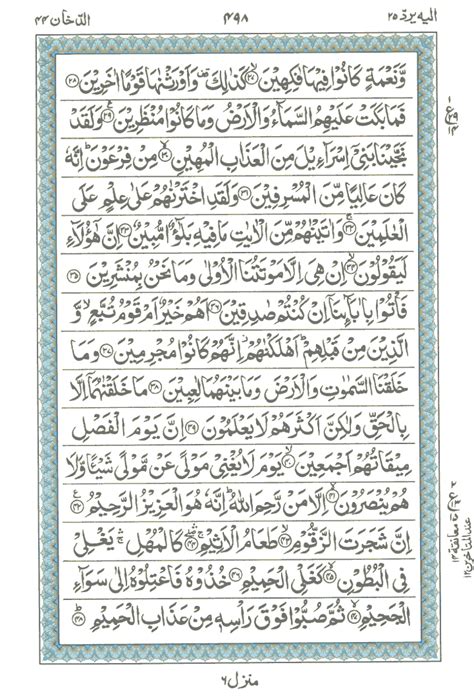 الدخان ٤٤ ٤٩٨ اليه يردّ ٢٥
وَّنَعۡمَةٍ كَانُوۡا فِيۡهَا فٰكِهِيۡنَ ۙ‏﴿۲۷﴾ كَذٰلِكَ ۟ وَاَوۡرَثۡنٰهَا قَوۡمًا اٰخَرِيۡنَ‏ ﴿۲۸﴾
فَمَا بَكَتۡ عَلَيۡهِمُ السَّمَآءُ وَالۡاَرۡضُ وَمَا كَانُوۡا مُنۡظَرِيۡنَ‏ ﴿۲۹﴾ وَلَقَدۡ
نَجَّيۡنَا بَنِىۡۤ اِسۡرَآءِيۡلَ مِنَ الۡعَذَابِ الۡمُهِيۡنِۙ‏ ﴿۳۰﴾ مِنۡ فِرۡعَوۡنَ‌ؕ اِنَّهٗ
كَانَ عَالِيًا مِّنَ الۡمُسۡرِفِيۡنَ‏ ﴿۳۱﴾ وَلَقَدِ اخۡتَرۡنٰهُمۡ عَلٰى عِلۡمٍ عَلَى
الۡعٰلَمِيۡنَ‌ۚ‏ ﴿۳۲﴾ وَاٰتَيۡنٰهُمۡ مِّنَ الۡاٰيٰتِ مَا فِيۡهِ بَلٰٓؤٌا مُّبِيۡنٌ‏ ﴿۳۳﴾ اِنَّ هٰٓؤُلَآءِ
لَيَقُوۡلُوۡنَۙ‏ ﴿۳۴﴾ اِنۡ هِىَ اِلَّا مَوۡتَتُنَا الۡاُوۡلٰى وَمَا نَحۡنُ بِمُنۡشَرِيۡنَ‏ ﴿۳۵﴾
فَاۡتُوۡا بِاٰبَآئِنَاۤ اِنۡ كُنۡتُمۡ صٰدِقِيۡنَ‏ ﴿۳۶﴾ اَهُمۡ خَيۡرٌ اَمۡ قَوۡمُ تُبَّعٍۙ وَّ
الَّذِيۡنَ مِنۡ قَبۡلِهِمۡ‌ؕ اَهۡلَكۡنٰهُمۡ‌ اِنَّهُمۡ كَانُوۡا مُجۡرِمِيۡنَ‏ ﴿۳۷﴾ وَمَا
خَلَقۡنَا السَّمٰوٰتِ وَالۡاَرۡضَ وَمَا بَيۡنَهُمَا لٰعِبِيۡنَ‏ ﴿۳۸﴾ مَا خَلَقۡنٰهُمَاۤ اِلَّا
بِالۡحَقِّ وَلٰكِنَّ اَكۡثَرَهُمۡ لَا يَعۡلَمُوۡنَ‏ ﴿۳۹﴾ اِنَّ يَوۡمَ الۡفَصۡلِ
مِيۡقَاتُهُمۡ اَجۡمَعِيۡنَۙ‏ ﴿۴۰﴾ يَوۡمَ لَا يُغۡنِىۡ مَوۡلًى عَنۡ مَّوۡلًى شَيۡــًٔا وَّلَا
هُمۡ يُنۡصَرُوۡنَۙ‏ ﴿۴۱﴾ اِلَّا مَنۡ رَّحِمَ اللّٰهُ‌ؕ اِنَّهٗ هُوَ الۡعَزِيۡزُ الرَّحِيۡمُ‏ ﴿۴۲﴾
اِنَّ شَجَرَتَ الزَّقُّوۡمِۙ‏ ﴿۴۳﴾ طَعَامُ الۡاَثِيۡمِ ۛۚ  ۖ‏ ﴿۴۴﴾ كَالۡمُهۡلِ ۛۚ يَغۡلِىۡ
فِى الۡبُطُوۡنِۙ‏ ﴿۴۵﴾ كَغَلۡىِ الۡحَمِيۡمِ‏ ﴿۴۶﴾ خُذُوۡهُ فَاعۡتِلُوۡهُ اِلٰى سَوَآءِ
الۡجَحِيۡمِ ۖ‏ ﴿۴۷﴾ ثُمَّ صُبُّوۡا فَوۡقَ رَاۡسِهٖ مِنۡ عَذَابِ الۡحَمِيۡمِؕ‏ ﴿۴۸﴾
معانقة ١٣
عند المتاخرين ١٢
منزل ٦